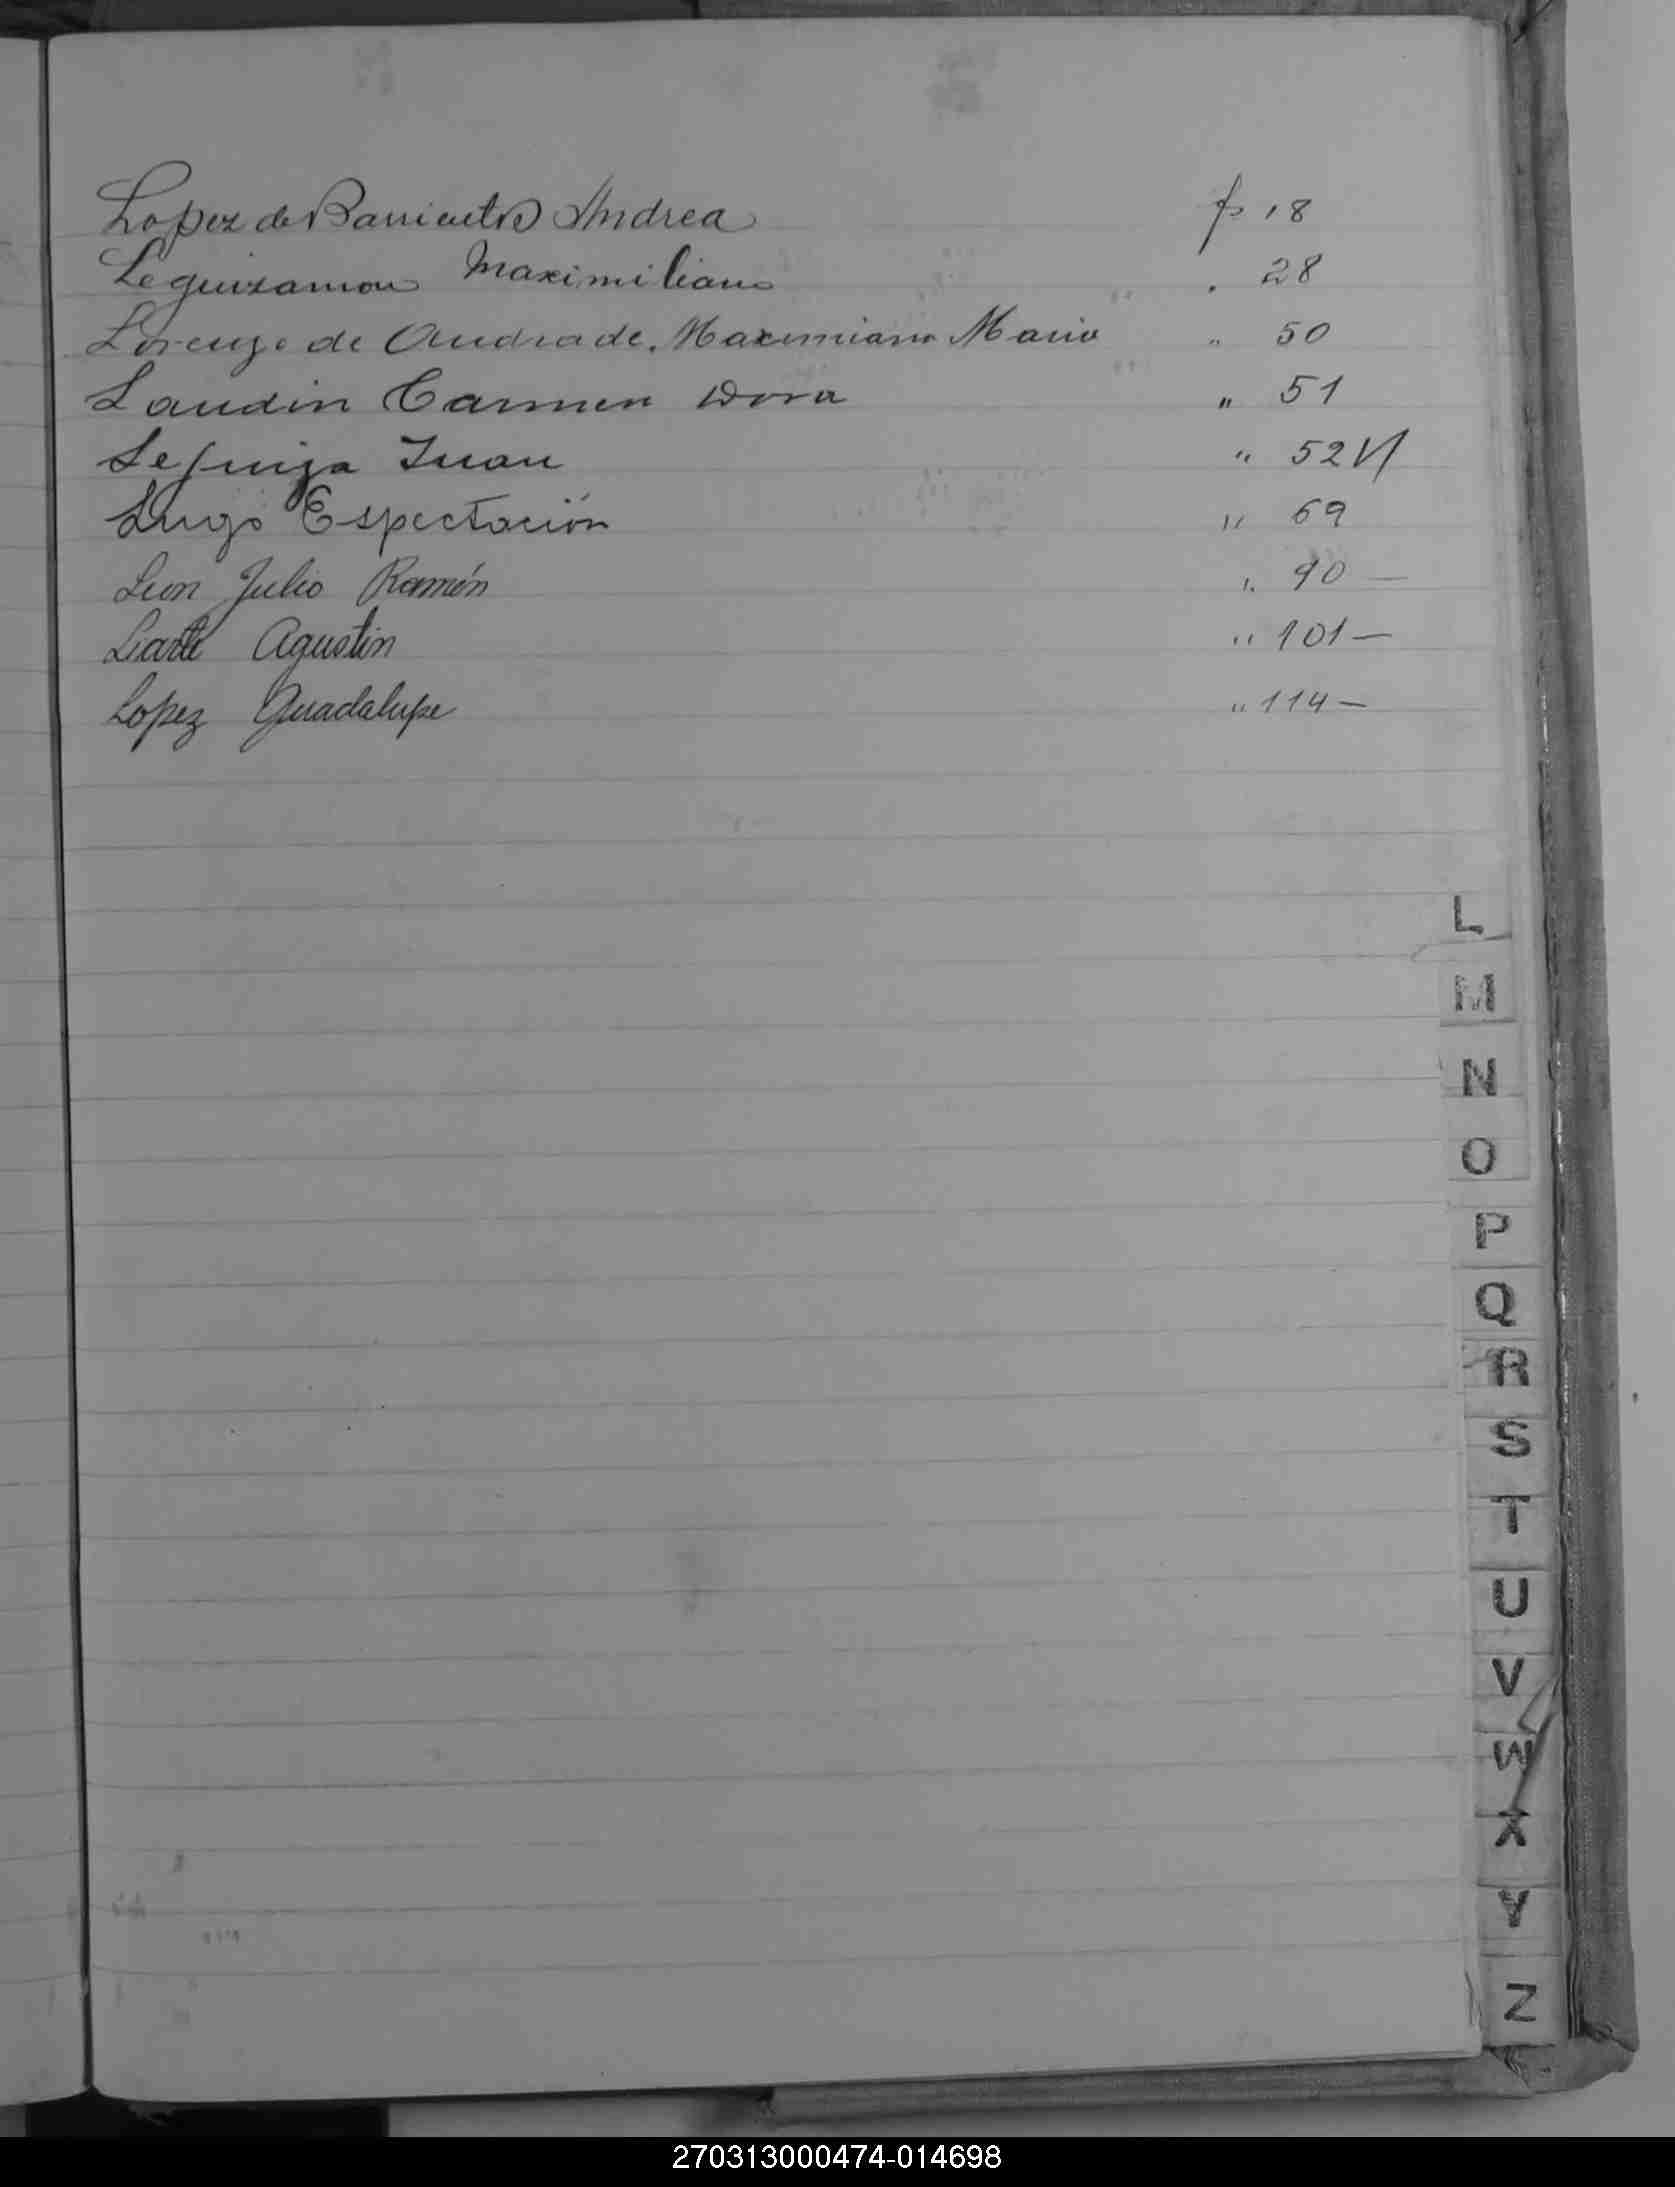 Lopez de Barrientos Andrea fs 18
Leguizamon Maximiliano . 28
Lorenzo de Andrade, Maximiano Mario " 50
Landin Carmen Dora " 51
Juan " 52 V
Lugo Espectación " 69
Leon Julio Ramón " 90 —
Liarte Agustin " 101 —
Lopez Guadalupe " 114 —
L
M
N
O
P
Q
R
S
T
U
V
W
X
Y
Z
270313000474-014698